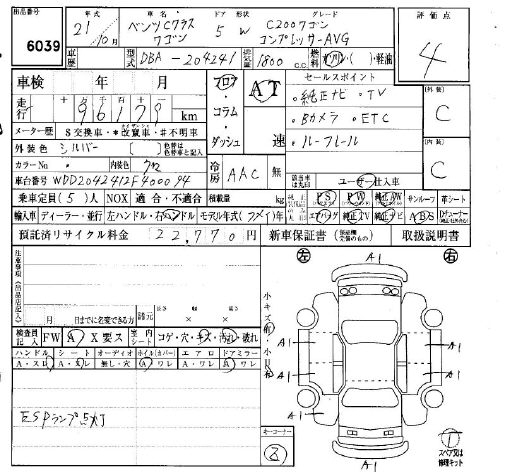 出品番号 年式 車名 ドア 形状 グレード 評価点
6039 21年 10月 ベンツCクラス ワゴン 5 W C200ワゴン コンプレッサーAVG 4
車歴 型式 DBA-204241 排気量 1800 C.C. 燃料 ガソリン・( )・軽油
車検 年 月 フロア・コラム・ダッシュ AT 速 セールスポイント
走行 96179 km ・純正ナビ ・TV
・Bカメラ ・ETC
・ルーフレール
外装 C
内装 C
メーター歴 S交換車・*改竄車・#不明車
外装色 シルバー 色替車は色替車と記入
カラーNo 内装色 クロ 冷房 AAC 無
車台番号 WDD2042412F400094 ユーザー仕入車
乗車定員(5)人 NOX 適合・不適合 積載量 kg PS PW 純正AW サンルーフ 革シート
輸入車 ディーラー・並行 左ハンドル・右ハンドル モデル年式( )年 エアバッグ 純正TV 純正ナビ ABS
預託済リサイクル料金 22,770 円 新車保証書 取扱説明書
注意事項(出品店記入)
左 右
A1
月 日までに名変できる方 諸元
検査員記入 FW A X要ス 室内シート コゲ・穴・キズ・汚れ・破れ
ハンドル シート オーディオ ホイル(カバー) エアロ ドアミラー
A・スレ 無し・穴 A ワレ A・ワレ A・ワレ
ESPランプ点灯
A1
A1
A1
A1
A1
A1
スペア又は修理キット